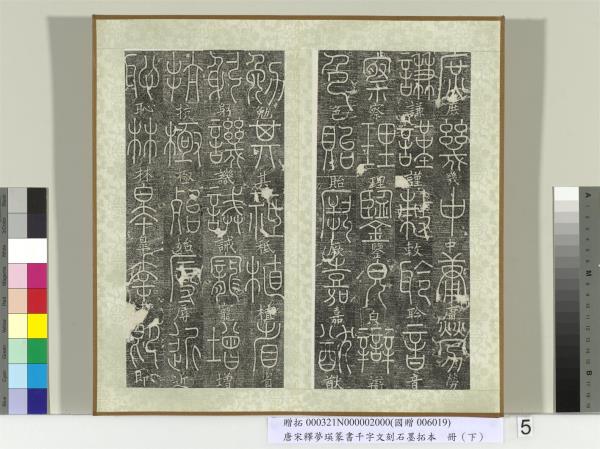 庶幾中庸勞
謙謹敕聆音
察理鑒皃辯
色貽厥嘉猷
勉其祗植省
躬譏誡寵增
抗極殆辱近
恥林皋幸即
贈拓 000321N000002000(國贈 006019)
唐宋釋夢瑛篆書千字文刻石墨拓本　冊（下）
5